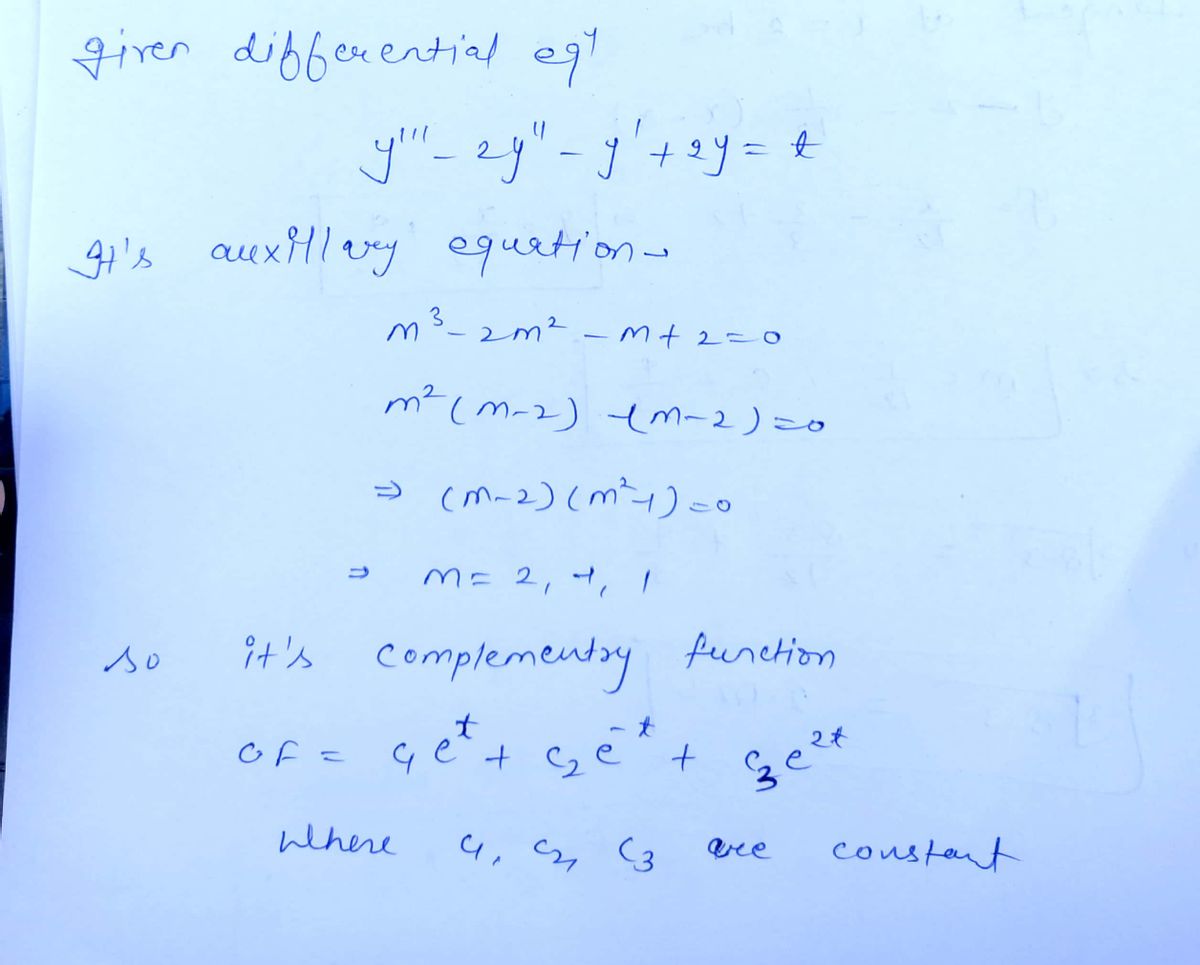 given differential eqn
y''' - 2y'' - y' + 2y = t
It's auxillary equation→
m³ - 2m² - m + 2 = 0
m² (m-2) -1(m-2) = 0
⇒ (m-2) (m²-1) = 0
⇒ m = 2, -1, 1
so it's complementry function
CF = c₁eᵗ + c₂e⁻ᵗ + c₃e²ᵗ
where c₁, c₂, c₃ are constant